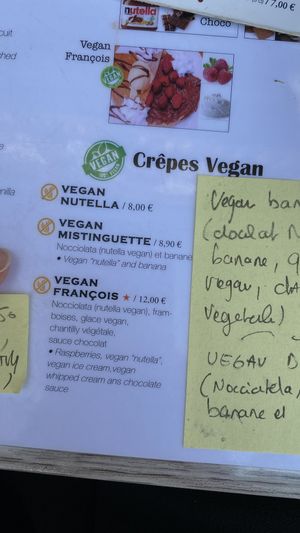 nutella
Choco
7,00 €
Vegan
François
VEGAN
Crêpes Vegan
VEGAN
NUTELLA / 8.00 €
VEGAN
MISTINGUETTE / 8,90 €
Nocciolata (nutella vegan) et banane
• Vegan "nutella" and banana
VEGAN
FRANÇOIS ★ / 12,00 €
Nocciolata (nutella vegan), fram-
boises, glace vegan,
chantilly végétale,
sauce chocolat
• Raspberries, vegan "nutella",
vegan ice cream,vegan
whipped cream ans chocolate
sauce
Vegan ban
banane, g
vegan,
vegetale)
VEGAN
banane et